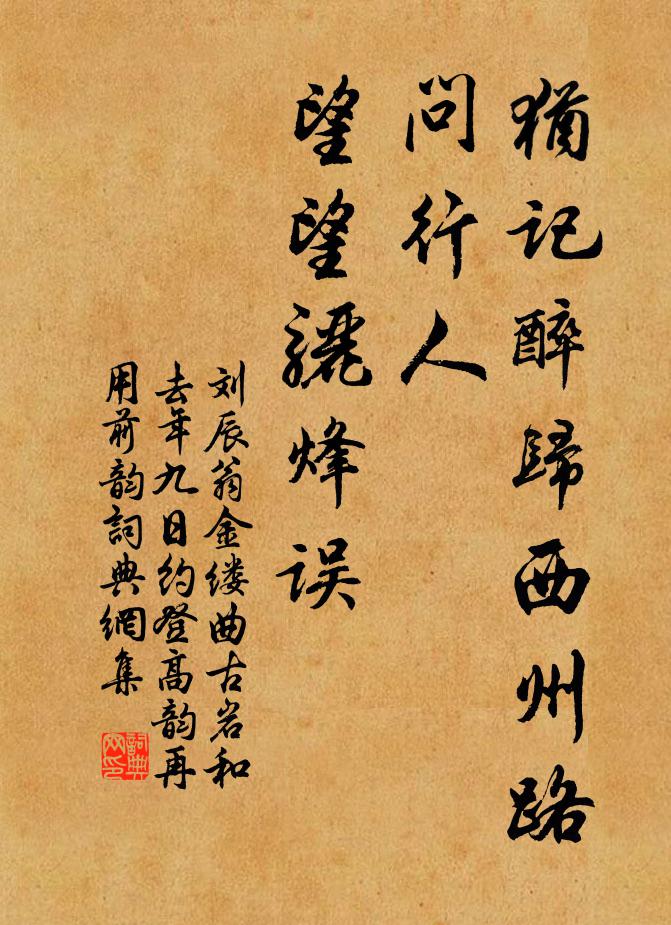 猶记醉歸西州路
问行人
望望骊烽误
刘辰翁金缕曲古岩和
去年九日约登高韵再
用前韵詞典網集
詞典
网印